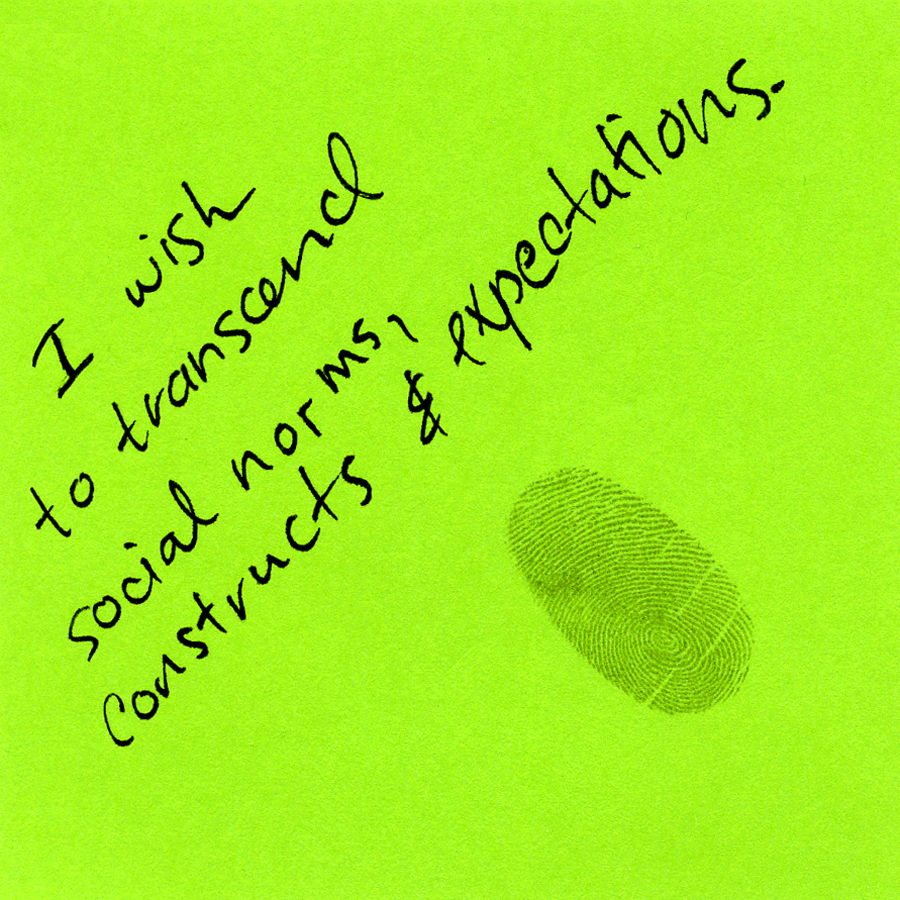 I wish
to transcend
social norms,
constructs & expectations.